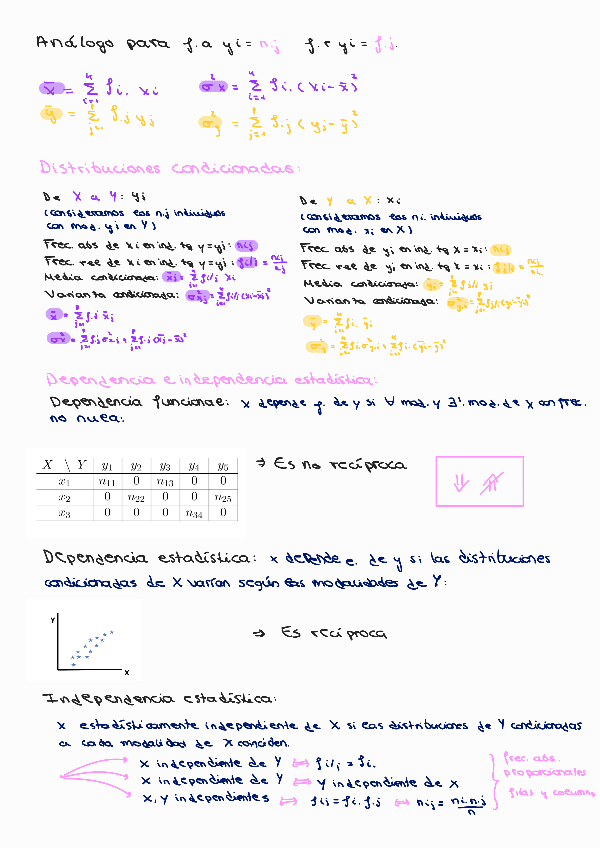 Análogo para f.a yi = n.j f.r yi = f.j.
x̄ = Σ(i=1, k) fi. xi σ²x = Σ(i=1, k) fi. (xi - x̄)²
ȳ = Σ(j=1, p) f.j yj σ²y = Σ(j=1, p) f.j (yj - ȳ)²
Distribuciones condicionadas:
De X a Y: yj
(consideramos los n.j individuos
con mod. yj en Y)
Frec abs de xi en ind. tq y=yj: nij
Frec rel de xi en ind. tq y=yj: fi/j = nij/n.j
Media condicionada: x̄j = Σ fi/j xi
Varianza condicionada: σ²xj = Σ fi/j (xi - x̄j)²
x̄ = Σ f.j x̄j
De Y a X: xi
(consideramos los ni. individuos
con mod. xi en X)
Frec abs de yj en ind. tq x = xi: nij
Frec rel de yj en ind. tq x = xi: fj/i = nij/ni.
Media condicionada: ȳi = Σ fj/i yj
Varianza condicionada: σ²yi = Σ fj/i (yj - ȳi)²
ȳ = Σ fi. ȳi
Dependencia e independencia estadística:
Dependencia funcional: x depende f. de y si ∀ mod. y ∃! mod. de x con frec.
no nula:
X \ Y y1 y2 y3 y4 y5
x1 n11 0 n13 0 0
x2 0 n22 0 0 n25
x3 0 0 0 n34 0
⇒ Es no recíproca
Dependencia estadística: x depende e. de y si las distribuciones
condicionadas de X varían según las modalidades de Y:
Y
X
⇒ Es recíproca
Independencia estadística:
x estadísticamente independiente de X si las distribuciones de Y condicionadas
a cada modalidad de X coinciden.
X independiente de Y ⇔ fi/j = fi.
X independiente de Y ⇔ Y independiente de X
X, Y independientes ⇔ fij = fi. f.j ⇔ nij = ni. n.j / n
frec. abs.
proporcionales
filas y columnas